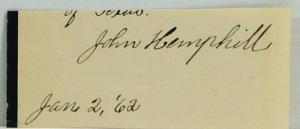 of Texas.
John Hemphill
Jan 2, '62